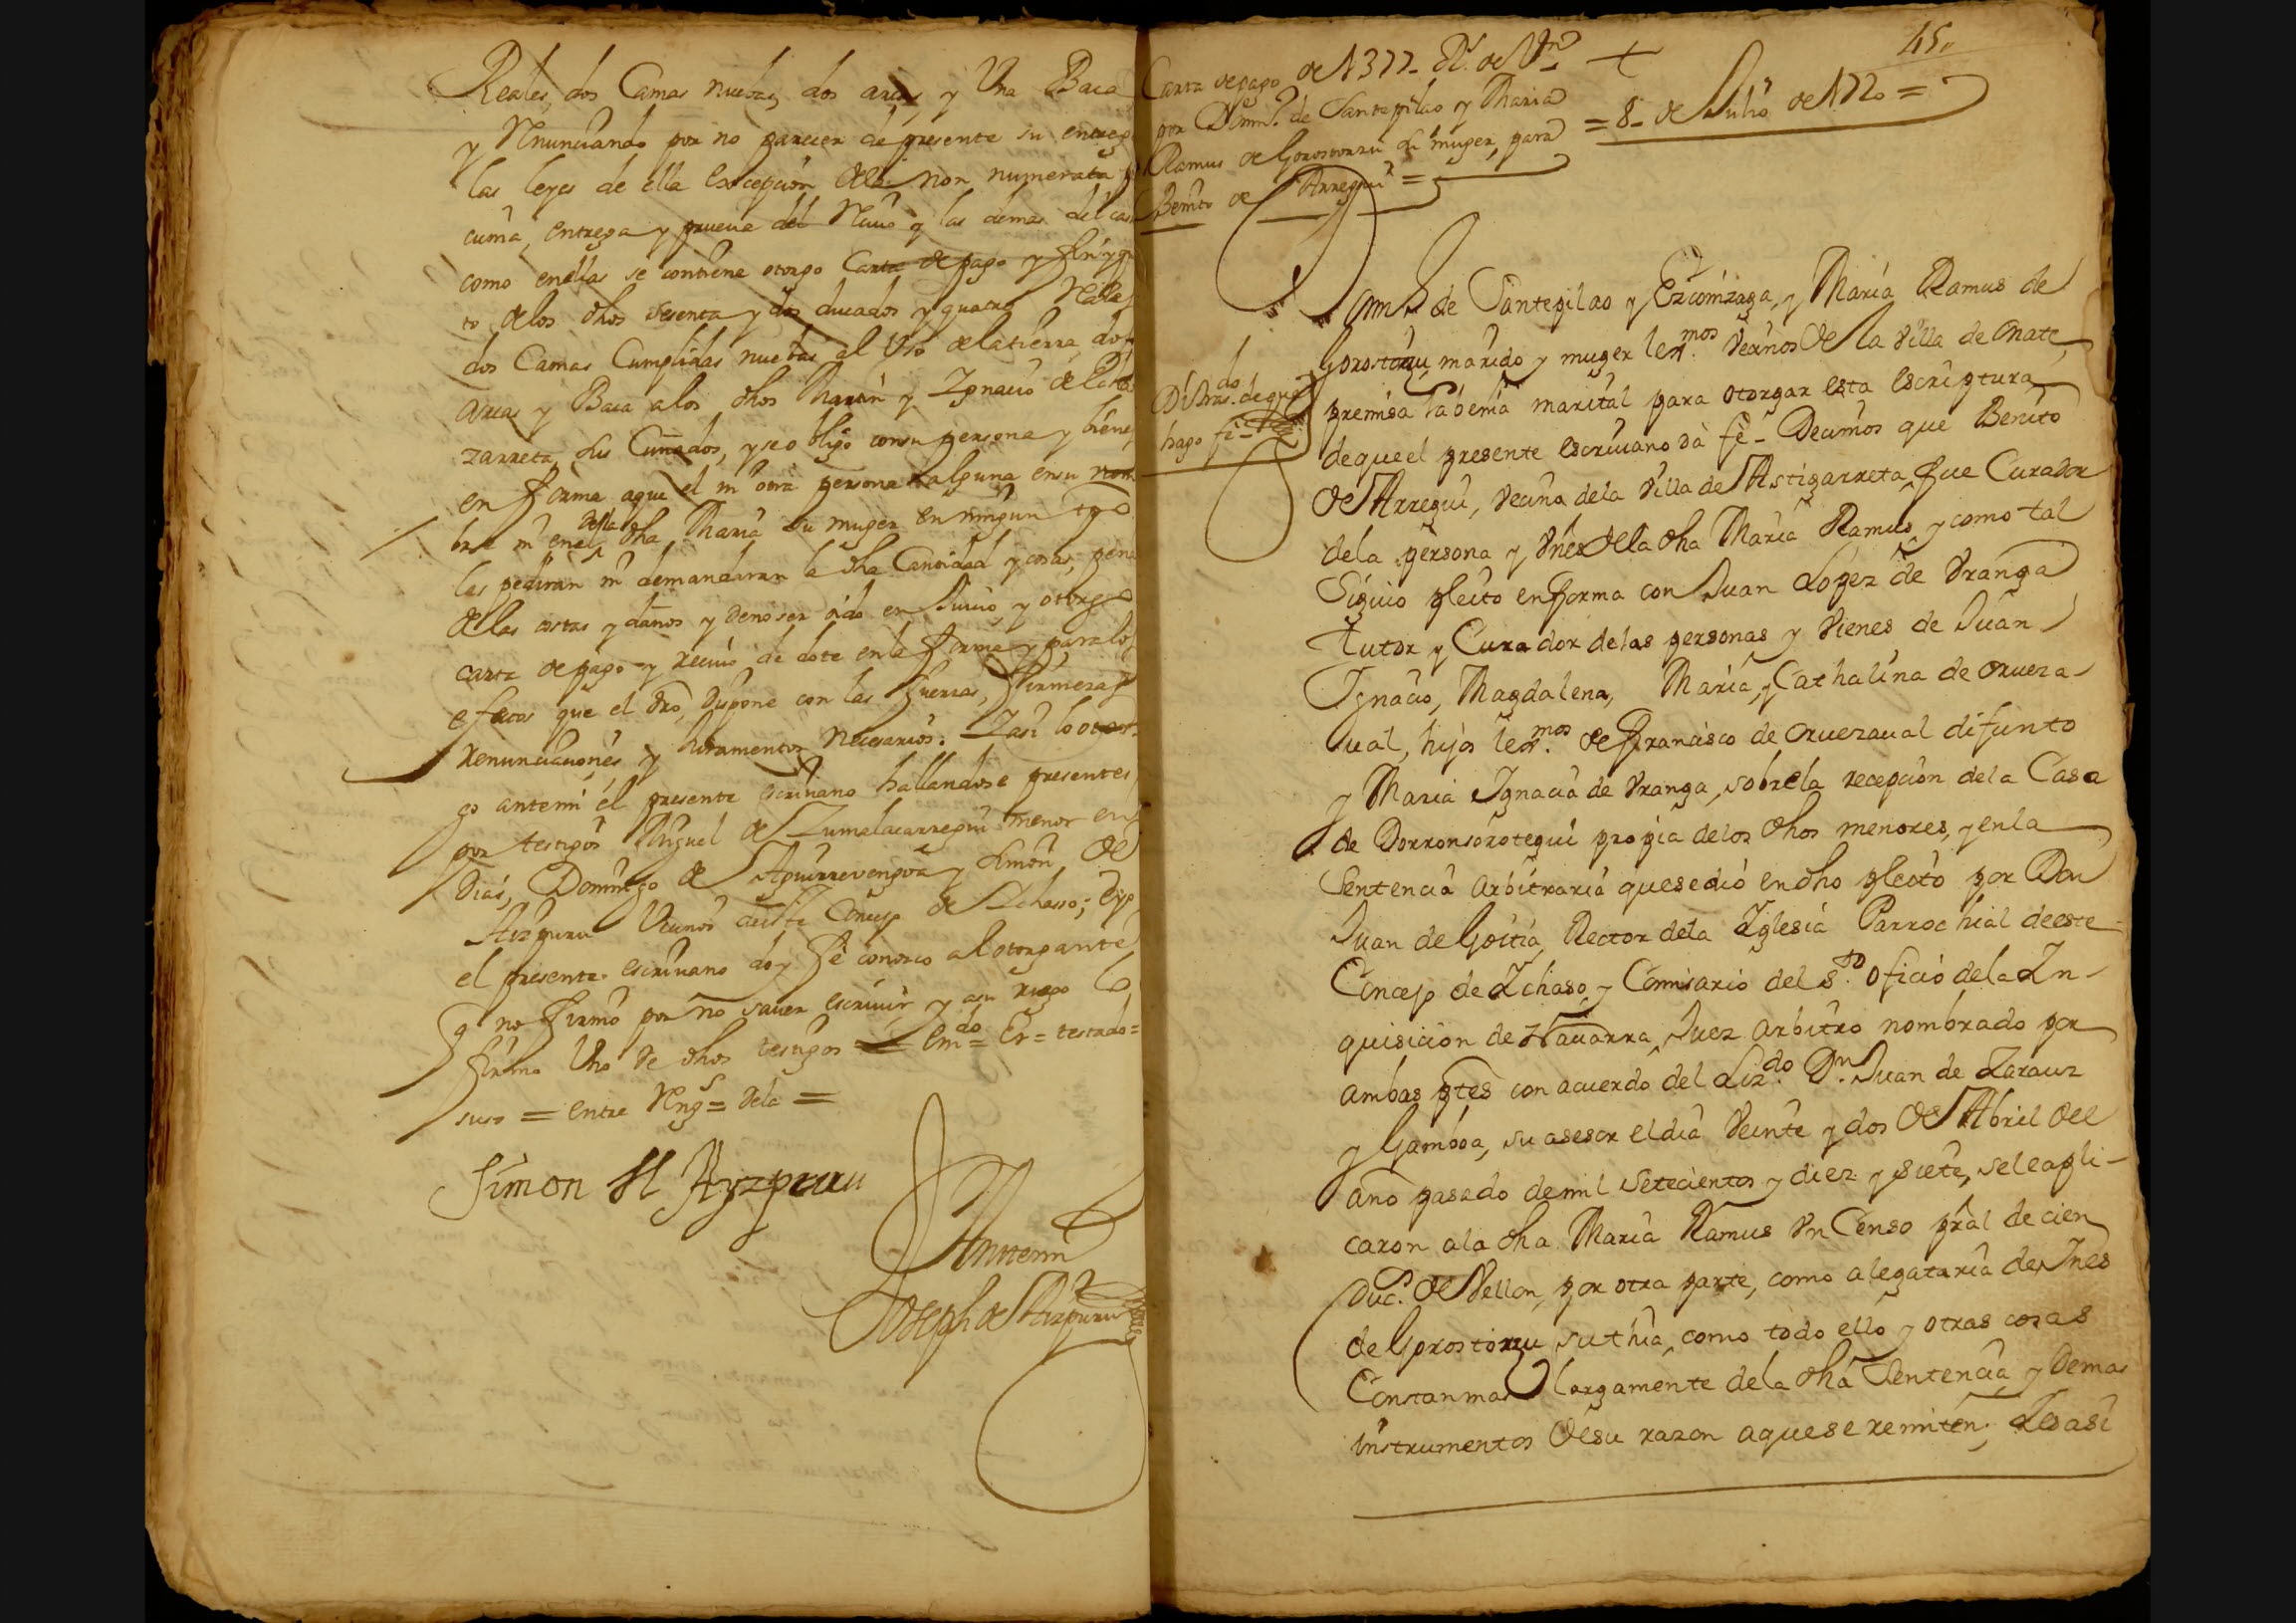 Reales, dos Camas nuebas, dos arcas, y Una Baca
y Renunciando por no parecer de presente su entreg
las leyes de ella excepcion dela non numerata p
cunia, entrega y prueua del Reciuo y las demas del caso
como enellas se contiene otorgo Carta de pago y finyqui
to delos dhos sesenta y dos ducados y quatro Reales
dos Camas Cumplidas nuebas al Uso dela tierra, dos
arcas y Baca alos dhos Martin y Ignacio de
zarreta, sus Cuñados, y se obligo consu persona y biene
en forma aque el ni otra persona alguna ensu nom
bre ni enel dela dha Maria su muger en ningun tpo
les pediran ni demandaran la dha Cantidad y cosas, pena
dellas costas y daños y deno ser oido en Juicio y otorgo
carta de pago y reciuo de dote en la forma y para los
efectos que el dro, dispone con las fuerzas, firmezas
renunciaciones y Juramentos necesarios. Y asi lo otor
go antemi el presente escriuano hallandose presentes
por testigos Miguel de Zumalacarregui menor en
dias, Domingo de Aguirrevengoa y Simon de
Aizpuru Vecinos deste Concejo de Ichasso; Eyo
el presente escriuano doy fe conosco al otorgante
q no firmo por no sauer escriuir y asu ruego lo
firmo Uno de dhos testigos = Em.do = Er = testado =
suso = entre Reng.s = dela =
Simon de Ayzpuru
Antemi
Joseph de Aizpuru
45
Carta de pago de 1377_ Rs. de Vn
por Domin.o de Santepilao y Maria
Ramus de Gorostorzu su muger, para
Benito de Arregui =
= 8_ de Julio de 1720 =
Domin.o de Santepilao y Ezcomzaga, y Maria Ramus de
Gorostorzu, marido y muger lex.mos Vecinos de la Villa de Onate,
premisa la benia marital para otorgar esta escriptura
Dihas.do de que
hago fe_
deque el presente escriuano dà fè_ Decimos que Benito
de Arregui, Vecino dela Villa de Astigarreta, fue Curador
dela persona y Vnes dela dha Maria Ramus, y como tal
Siguio pleito enforma con Juan Lopez de Vranga
Tutor y Curador delas personas y Vienes de Juan
Ignacio, Magdalena, Maria, y Cathalina de Orueza-
ual, hijos lex.mos de Francisco de Oruezaual difunto
y Maria Ignacia de Vranga, sobrela recepcion dela Casa
de Dorronsorotegui propia delos dhos menores, y enla
Sentencia arbitraria quesedió endho pleito por Don
Juan de Goitia, Rector dela Iglesia Parrochial deeste
Concejo de Ichaso, y Comisario del S.to oficio dela In-
quisicion de Nauarra, Juez arbitro nombrado por
ambas ptes con acuerdo del Liz.do Dn. Juan de Zarauz
y Gamboa, su asesor eldia Veinte y dos de Abril del
año pasado demil setecientos y diez y siete, seleapli-
caron ala dha Maria Ramus Vn Censo pral de cien
Duc.s de Vellon, por otra parte, como alegataria de Ines
de Gorostorzu su thia, como todo ello y otras cosas
Constanmas largamente dela dha Sentencia y demas
instrumentos desu razon aquese remiten; Yo asi